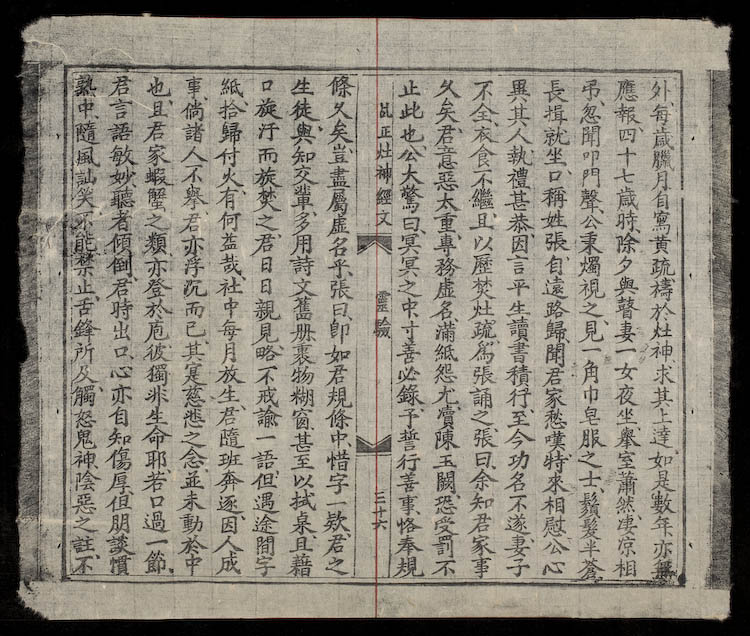 外每歲臘月自寫黃疏禱於灶神求其上達如是數年亦無
應報四十七歲時除夕與瞽妻一女夜坐舉室蕭然凄凉相
弔忽聞叩門聲公秉燭視之見一角巾皂服之士鬚髮半蒼
長揖就坐口稱姓張自遠路歸聞君家愁嘆特來相慰公心
異其人執禮甚恭因言平生讀書積行至今功名不遂妻子
不全衣食不繼且以歷焚灶疏爲張誦之張曰余知君家事
久矣君意惡太重專務虛名滿紙怨尤瀆陳玉闕恐受罰不
止此也公大驚曰冥冥之中寸善必錄予誓行善事恪奉規
正灶神經文
靈驗
三十六
條久矣豈盡屬虛名乎張曰卽如君規條中惜字一欵君之
生徒與知交輩多用詩文舊册裹物糊窗甚至以拭桌且藉
口旋汙而旋焚之君日日親見略不戒諭一語但遇途間字
紙拾歸付火有何益哉社中每月放生君隨班奔逐因人成
事倘諸人不舉君亦浮沉而已其寔慈悲之念並未動於中
也且君家蝦蟹之類亦登於庖彼獨非生命耶若口過一節
君言語敏妙聽者傾倒君時出口心亦自知傷厚但朋談慣
熟中隨風訕笑不能禁止舌鋒所及觸怒鬼神陰惡之註不